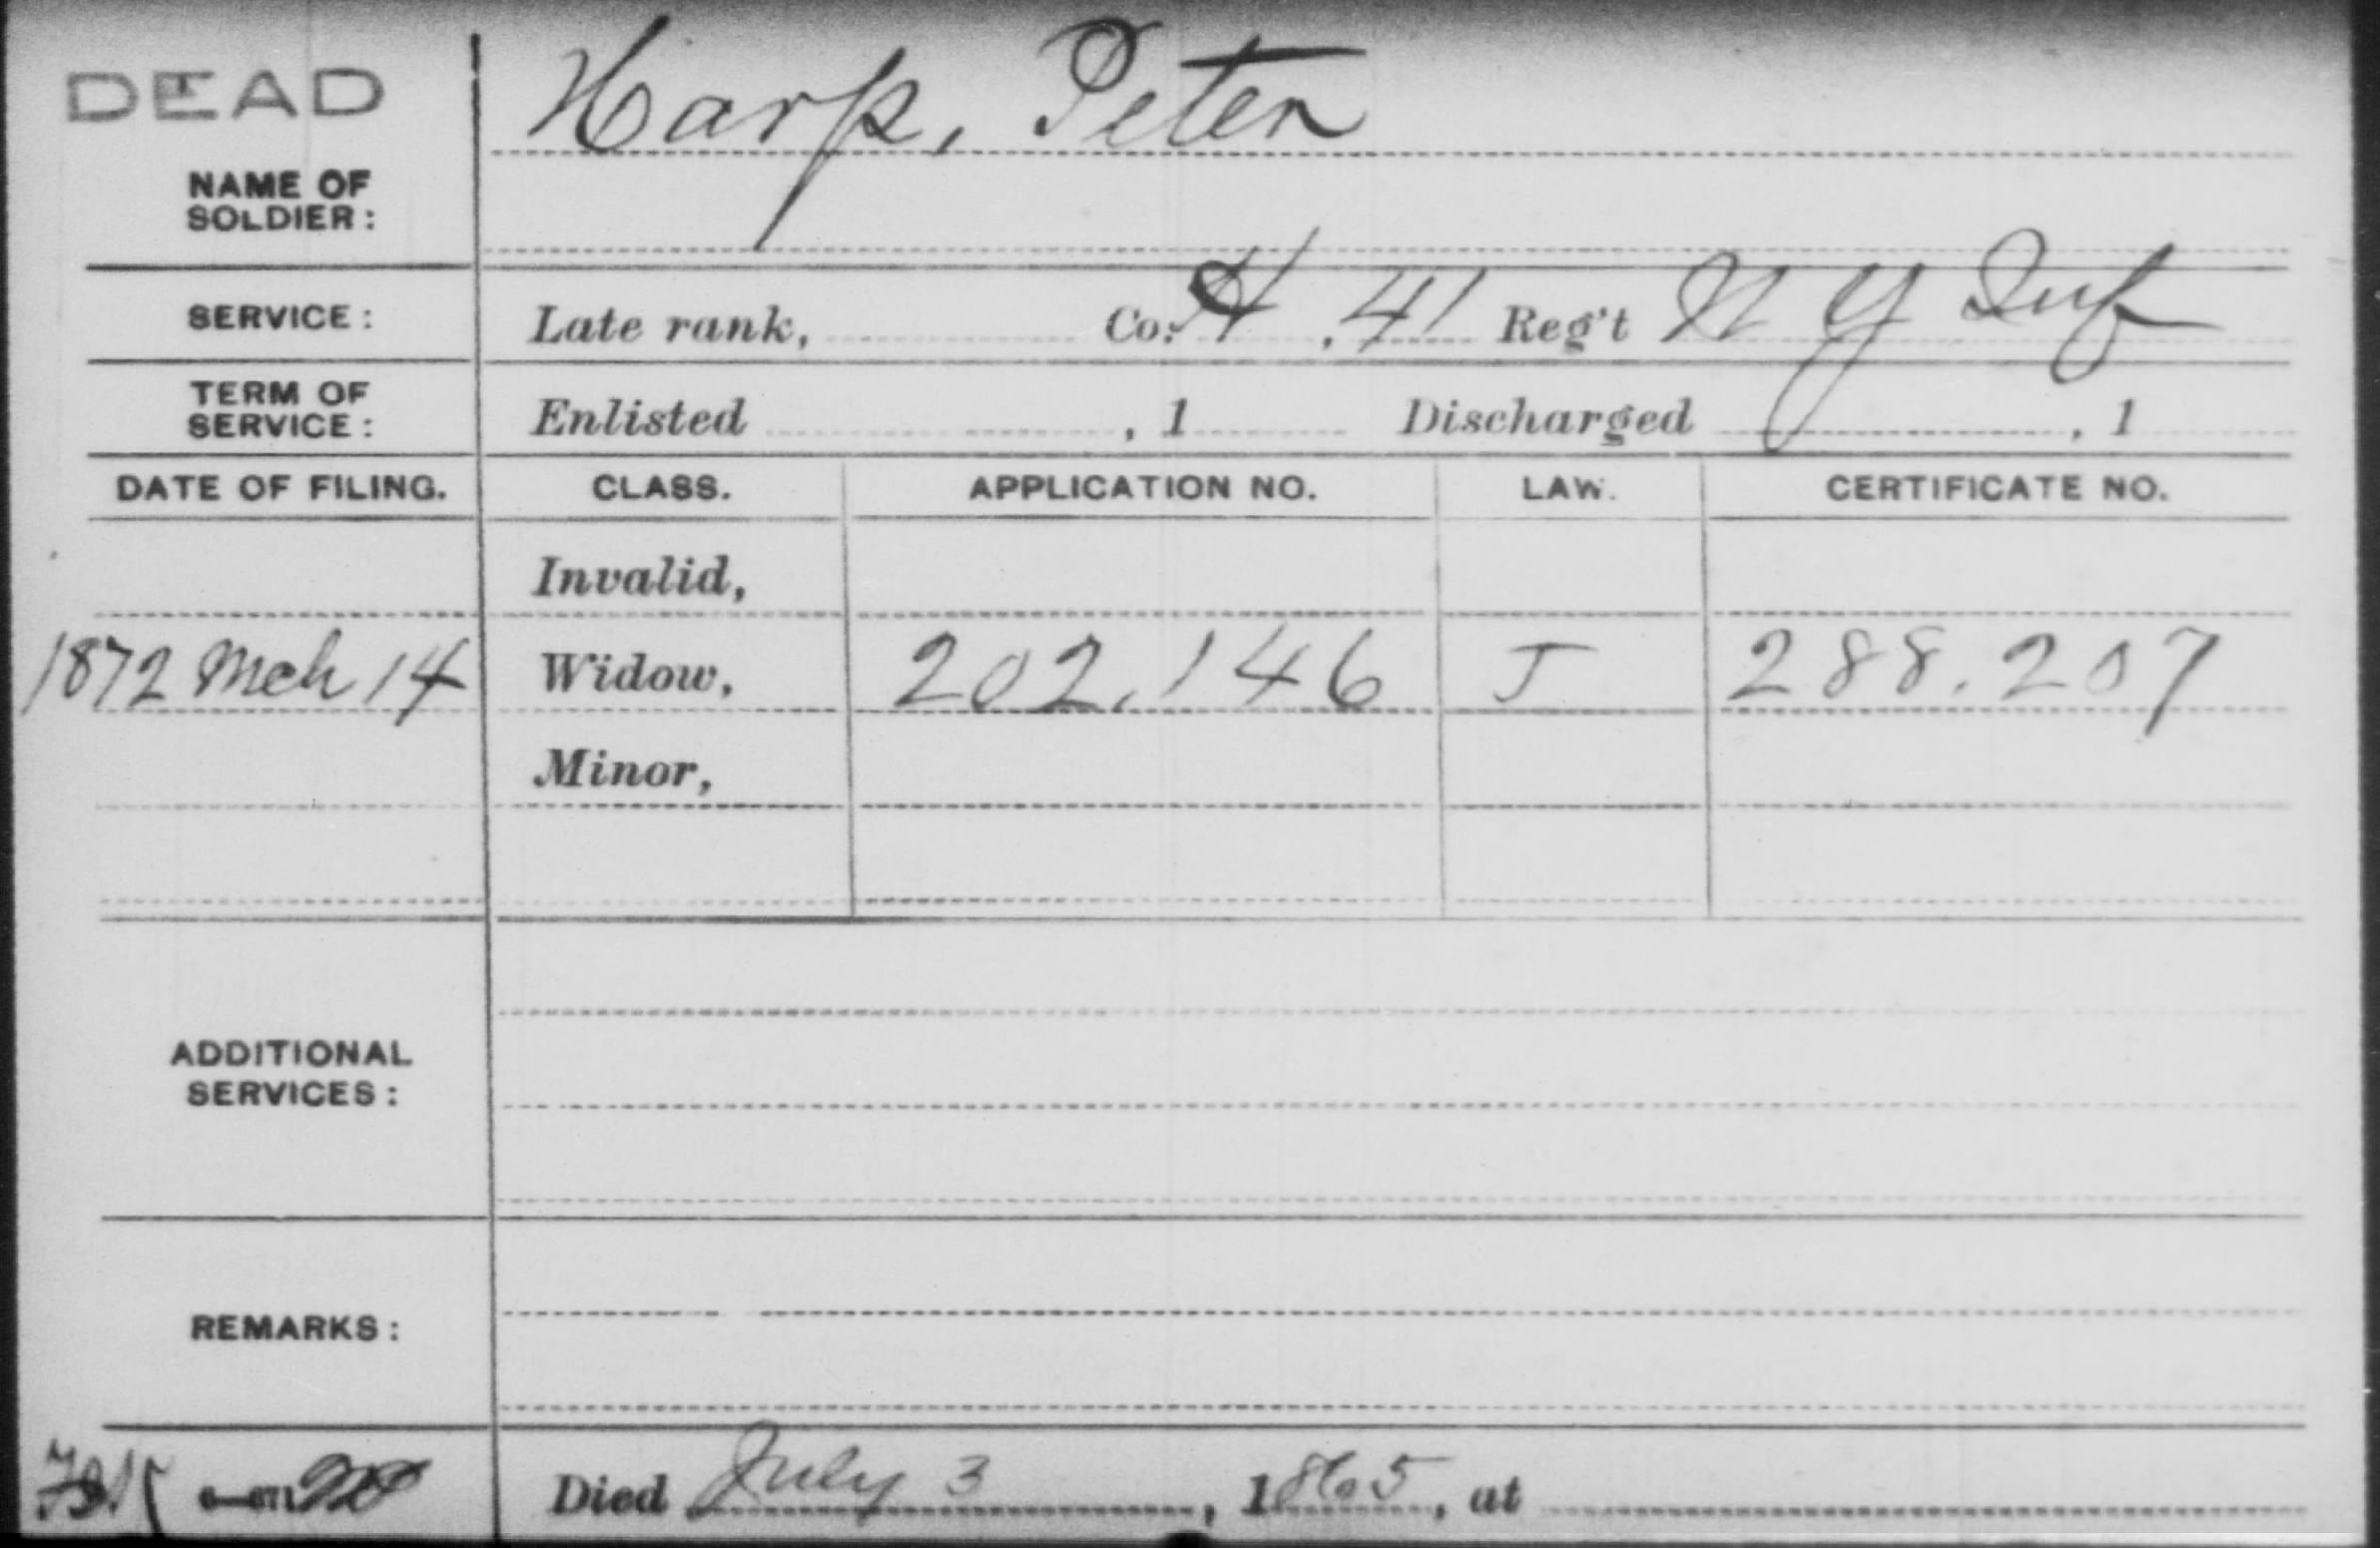 DEAD
Harp, Peter
NAME OF
SOLDIER:
SERVICE: Late rank, Co. H, 41 Reg't N Y Inf
TERM OF
SERVICE: Enlisted , 1 Discharged , 1
DATE OF FILING. CLASS. APPLICATION NO. LAW. CERTIFICATE NO.
Invalid,
1872 Mch 14 Widow, 202,146 J 288.207
Minor,
ADDITIONAL
SERVICES:
REMARKS:
Died July 3, 1865, at